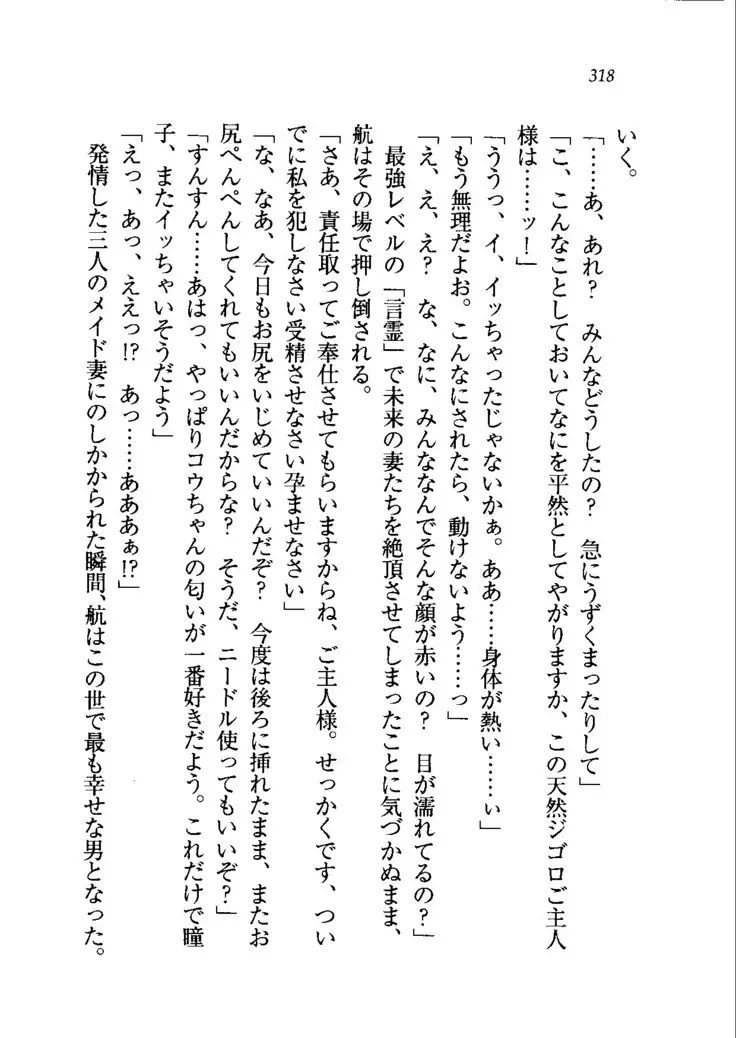 318
いく。
「……あ、あれ？　みんなどうしたの？　急にうずくまったりして」
「こ、こんなことしておいてなにを平然としてやがりますか、この天然ジゴロご主人
様は……ッ！」
「ううっ、イ、イッちゃったじゃないかぁ。ああ……身体が熱い……ぃ」
「もう無理だよお。こんなにされたら、動けないよう……っ」
「え、え、え？　な、なに、みんななんでそんな顔が赤いの？　目が濡れてるの？」
最強レベルの「言霊」で未来の妻たちを絶頂させてしまったことに気づかぬまま、
航はその場で押し倒される。
「さあ、責任取ってご奉仕させてもらいますからね、ご主人様。せっかくです、つい
でに私を犯しなさい受精させなさい孕ませなさい」
「な、なあ、今日もお尻をいじめていいんだぞ？　今度は後ろに挿れたまま、またお
尻ぺんぺんしてくれてもいいんだからな？　そうだ、ニードル使ってもいいぞ？」
「すんすん……あはっ、やっぱりコウちゃんの匂いが一番好きだよう。これだけで瞳
子、またイッちゃいそうだよう」
「えっ、あっ、ええっ!?　あっ……あああぁ!?」
発情した三人のメイド妻にのしかかられた瞬間、航はこの世で最も幸せな男となった。